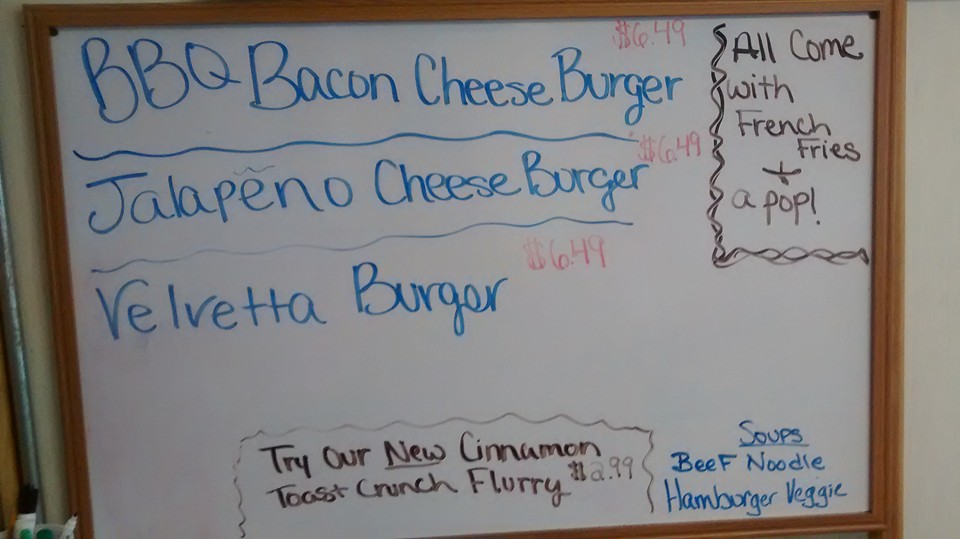 $6.49
BBQ Bacon Cheese Burger
$6.49
Jalapeño Cheese Burger
$6.49
Velvetta Burger
All Come
with
French
Fries
+
a pop!
Try Our New Cinnamon
Toast Crunch Flurry $2.99
Soups
Beef Noodle
Hamburger Veggie